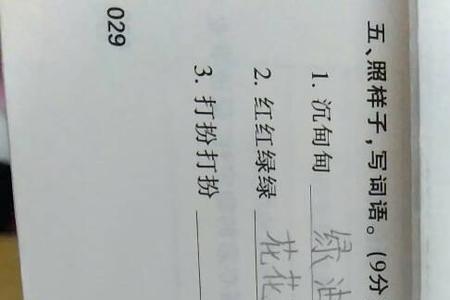 五、照样子,写词语。(9分
1. 沉甸甸 绿油
2. 红红绿绿 花花
3. 打扮打扮
029